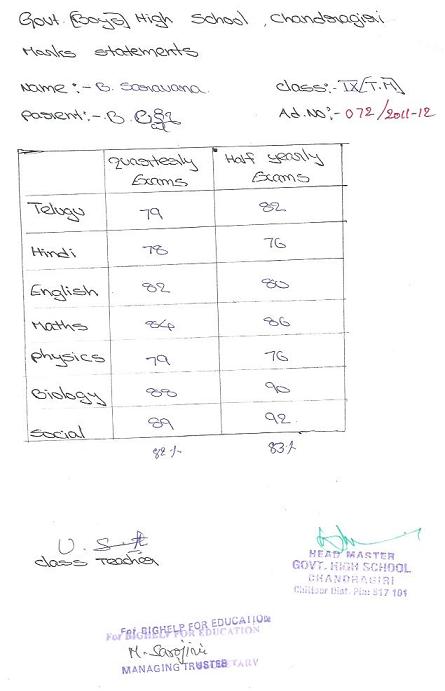 Govt. [Boys] High School, Chandragiri
Marks statements
Name :- B. Saravana. Class:- IX[T.M]
Parent:- B. Ad.No:- 072/2011-12
Quarterly Exams Half yearly Exams
Telugu 79 82
Hindi 78 76
English 82 80
Maths 84 86
Physics 79 76
Biology 88 90
Social 89 92
82 % 83 %
Class Teacher
HEAD MASTER
GOVT. HIGH SCHOOL
CHANDRAGIRI
Chittoor Dist. Pin: 517 101
For BIGHELP FOR EDUCATION
For BIGHELP FOR EDUCATION
M. Sarojini
MANAGING TRUSTEE